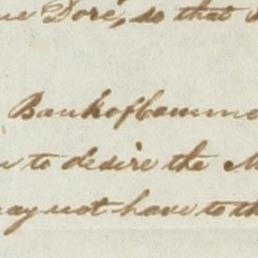 Doré, so that
Bank of Comme
to desire the M
ay not have to th